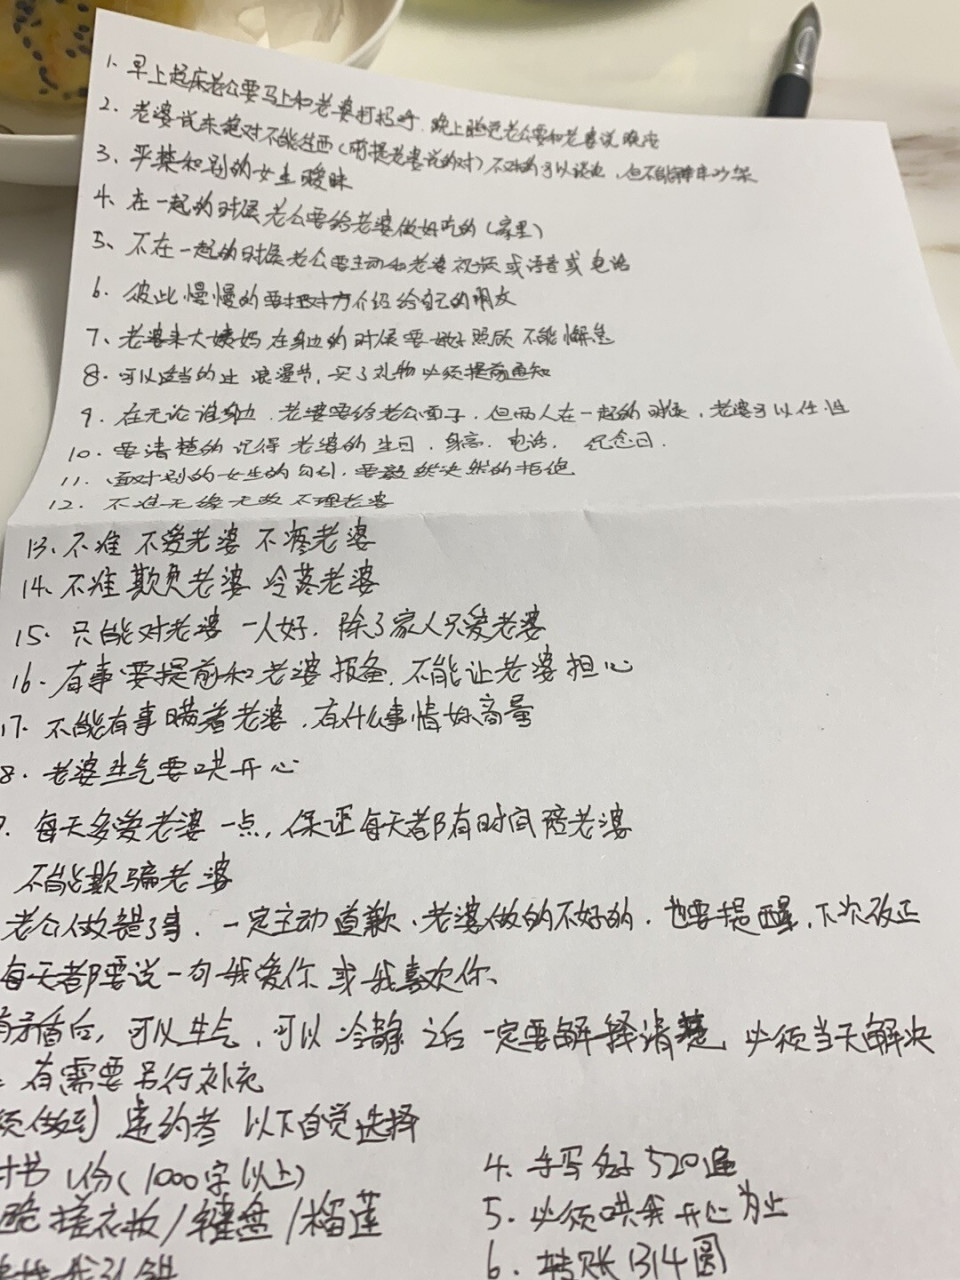 1. 早上起床老公要马上和老婆打招呼，晚上睡觉老公要和老婆说晚安
2. 老婆说东绝对不能往西(前提老婆说的对)不对的可以谈论，但不能吵架
3. 严禁和别的女生暧昧
4. 在一起的时候老公要给老婆做好吃的(家里)
5、不在一起的时候老公要主动和老婆视频或语音或电话
6. 彼此慢慢的要把对方介绍给自己的朋友
7、老婆来大姨妈在身边的时候要好照顾不能懈怠
8. 可以适当的过浪漫节，买了礼物必须提前通知
9. 在无论谁身边，老婆要给老公面子，但两人在一起的时候，老婆可以任性
10. 要清楚的记得老婆的生日，身高，电话，纪念日.
11. 面对别的女生的勾引，要毅然决然的拒绝
12. 不准无缘无故不理老婆
13. 不准 不爱老婆 不疼老婆
14. 不准欺负老婆 冷落老婆
15. 只能对老婆一人好. 除了家人只爱老婆
16. 有事要提前和老婆报备. 不能让老婆担心
17. 不能有事瞒着老婆，有什么事情好商量
8. 老婆生气要哄开心
每天多爱老婆一点，保证每天都有时间陪老婆
不能欺骗老婆
老公做错了事，一定主动道歉、老婆做的不好的，也要提醒，下次改正
每天都要说一句我爱你 或 我喜欢你、
有矛盾后，可以生气，可以冷静 之后 一定要解释清楚 必须当天解决
有需要另行补充
须做到 违约者 以下自觉选择
讨书 1份(1000字以上)
跪 搓衣板/键盘/榴莲
4. 手写 520遍
5. 必须哄我开心为止
6. 转账1314圆